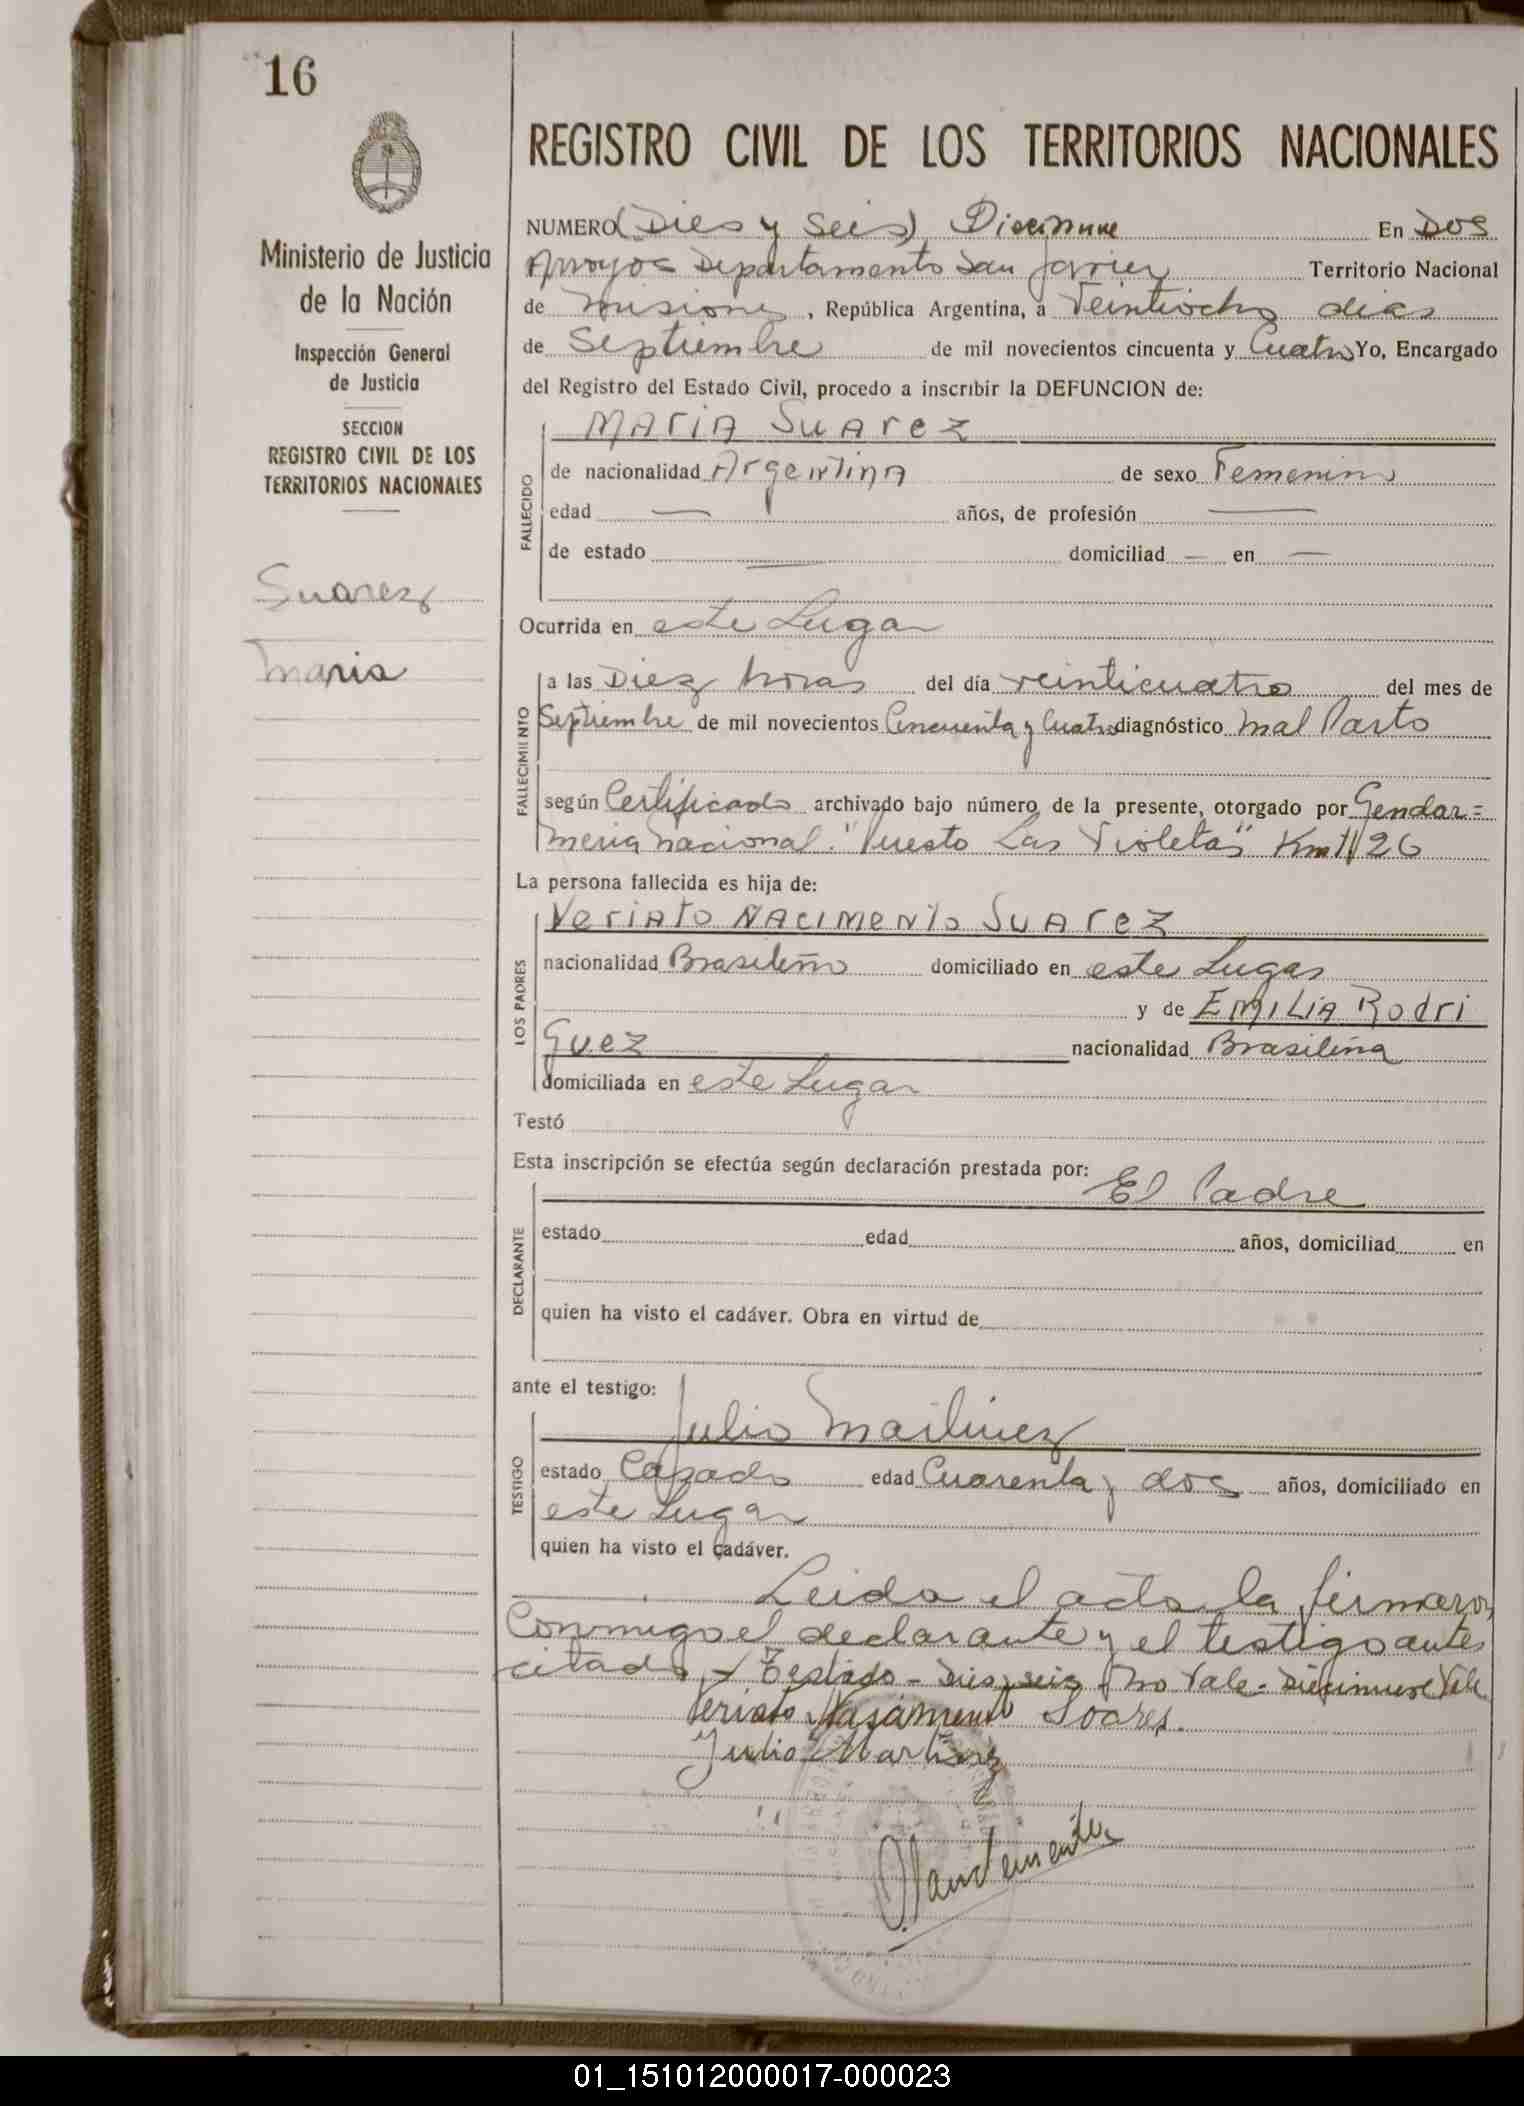 16
REGISTRO CIVIL DE LOS TERRITORIOS NACIONALES
Ministerio de Justicia
de la Nación
Inspección General
de Justicia
SECCION
REGISTRO CIVIL DE LOS
TERRITORIOS NACIONALES
Suarez
Maria
NUMERO (Dies y Seis) Diecinueve En Dos
Arroyos Departamento San Javier Territorio Nacional
de Misiones, República Argentina, a Veintiocho dias
de Septiembre de mil novecientos cincuenta y Cuatro Yo, Encargado
del Registro del Estado Civil, procedo a inscribir la DEFUNCION de:
MARIA SUAREZ
FALLECIDO
de nacionalidad Argentina de sexo Femenino
edad — años, de profesión —
de estado — domiciliad — en —
Ocurrida en este Lugar
FALLECIMIENTO
a las Diez horas del día veinticuatro del mes de
Septiembre de mil novecientos Cincuenta y Cuatro diagnóstico Mal Parto
según Certificado archivado bajo número de la presente, otorgado por Gendar=
meria Nacional. "Puesto Las Violetas" Km 1126
La persona fallecida es hija de:
LOS PADRES
VERIATO NACIMENTO SUAREZ
nacionalidad Brasileño domiciliado en este Lugar
y de EMILIA Rodri
Guez nacionalidad Brasileña
domiciliada en este Lugar
Testó
Esta inscripción se efectúa según declaración prestada por:
DECLARANTE
El Padre
estado edad años, domiciliad en
quien ha visto el cadáver. Obra en virtud de
ante el testigo:
TESTIGO
Julio Martinez
estado Casado edad Cuarenta y dos años, domiciliado en
este Lugar
quien ha visto el cadáver.
Leida el acta la firmaron
Conmigo el declarante y el testigo antes
citado - Testado - Dies y seis - No Vale - Diecinueve Vale
Veriato Nasamento Soares.
Julio Martinez
01_151012000017-000023